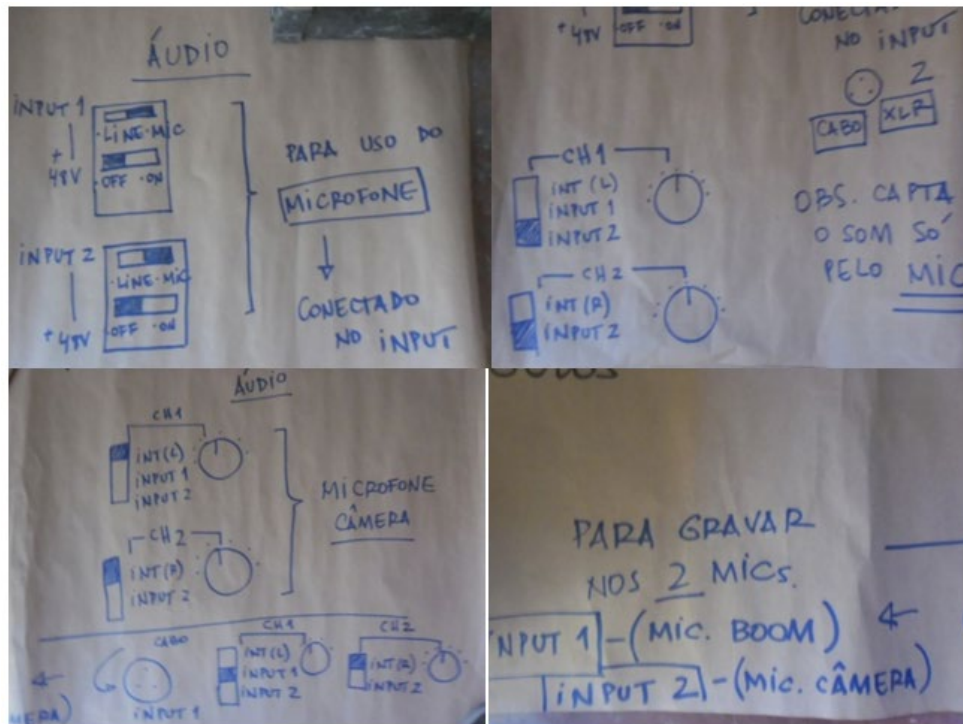 ÁUDIO
INPUT 1
·LINE·MIC
+
48V
·OFF ·ON
INPUT 2
·LINE·MIC
+48V
·OFF ·ON
PARA USO DO
MICROFONE
CONECTADO
NO INPUT
+48V
·OFF ·ON
CONECTA
NO INPUT
2
CABO XLR
CH1
INT (L)
INPUT 1
INPUT 2
CH2
INT (R)
INPUT 2
OBS. CAPTA
O SOM SÓ
PELO MIC
ÁUDIO
CH1
INT (L)
INPUT 1
INPUT 2
CH2
INT (R)
INPUT 2
MICROFONE
CÂMERA
CABO
INPUT 1
CH1
INT (L)
INPUT 1
INPUT 2
CH2
INT (R)
INPUT 2
MERA)
PARA GRAVAR
NOS 2 MICS.
INPUT 1 - (MIC. BOOM)
INPUT 2 - (MIC. CÂMERA)